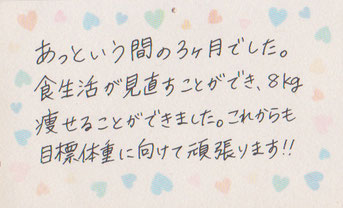 あっという間の3ヶ月でした。
食生活が見直すことができ、8kg
痩せることができました。これからも
目標体重に向けて頑張ります!!